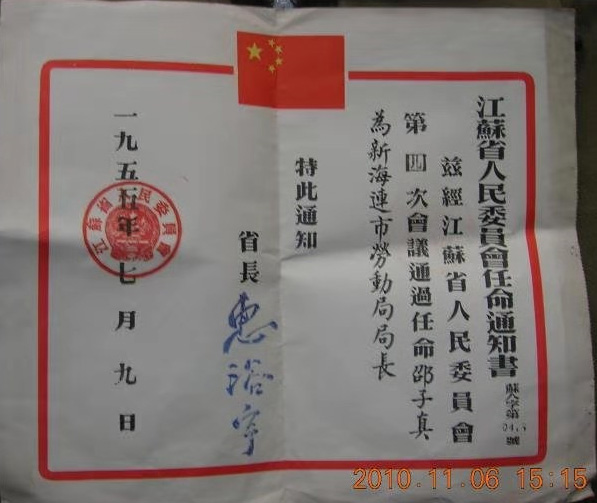 江蘇省人民委員會任命通知書
蘇人字第 號
茲經江蘇省人民委員會
第四次會議通過任命邵子真
為新海連市勞動局局長
特此通知
省長 惠裕宇
一九五五年七月九日
江蘇省人民委員會
2010.11.06 15:15